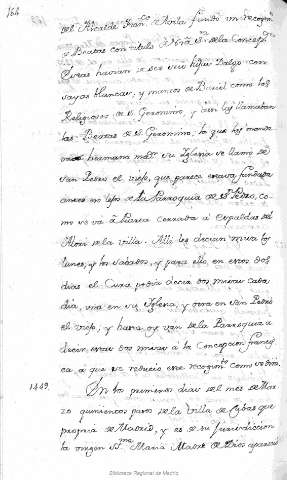 164
del Alcalde Fran.co Avila fundó un recogim.to
o Beatas con titulo de Nra S.ra de la Concep.on
havian de ser seis hijas Dalgo con
sayas blancas, y mantos de Buriel como los
Religiosos de S. Geronimo, y assi las llamaban
las Beatas de S. Geronimo, lo que les
hermana su Iglesia se llamo de
San Pedro el viejo, que parece estava fundada
antes en lejos de la Parroquia de S. Pedro, co
mo se va a Puerta Cerrada a espaldas del
de la Villa. Alli les decian missa los
lunes, y los sabados, y para ello en estos dos
dias el Cura podia decir dos missas cada
dia, una en su Iglesia, y otra en San Pedro
el viejo, y hasta oy van de la Parroquia a
decir estas dos missas a la Concepcion francis
ca, a que se reducio este recogim.to como se dira.
1449. En los primeros dias del mes de Mar
zo quinientos pasos de la Villa de Cubas que
propria de Madrid, y es de su jurisdiccion
la Virgen S.ma Maria Madre de Dios aparecio
Biblioteca Regional de Madrid